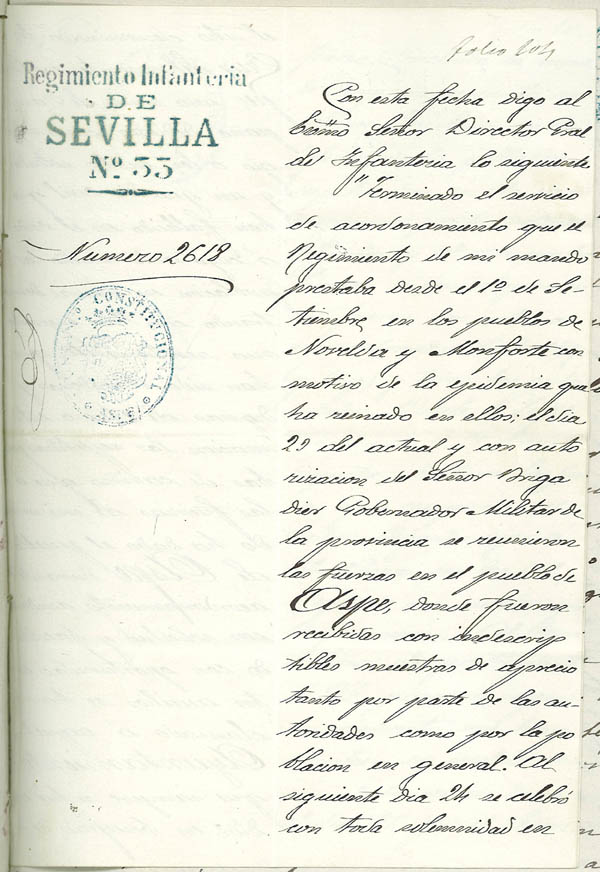 Folio 204
Regimiento Infanteria
DE
SEVILLA
Nº 33
Numero 2618
CONSTITUCIONAL
Con esta fecha digo al
Excmo Señor Director Gral
de Infanteria lo siguiente
"Terminado el servicio
de acordonamiento que el
Regimiento de mi mando
prestaba desde el 1º de Se-
tiembre, en los pueblos de
Novelda y Monforte con
motivo de la epidemia que
ha reinado en ellos; el dia
23 del actual y con auto
rizacion del Señor Briga
dier Gobernador Militar de
la provincia se reunieron
las fuerzas en el pueblo de
Aspe, donde fueron
recibidas con indescrip
tibles muestras de aprecio
tanto por parte de las au-
toridades como por la po
blacion en general. Al
siguiente dia 24 se celebró
con toda solemnidad en